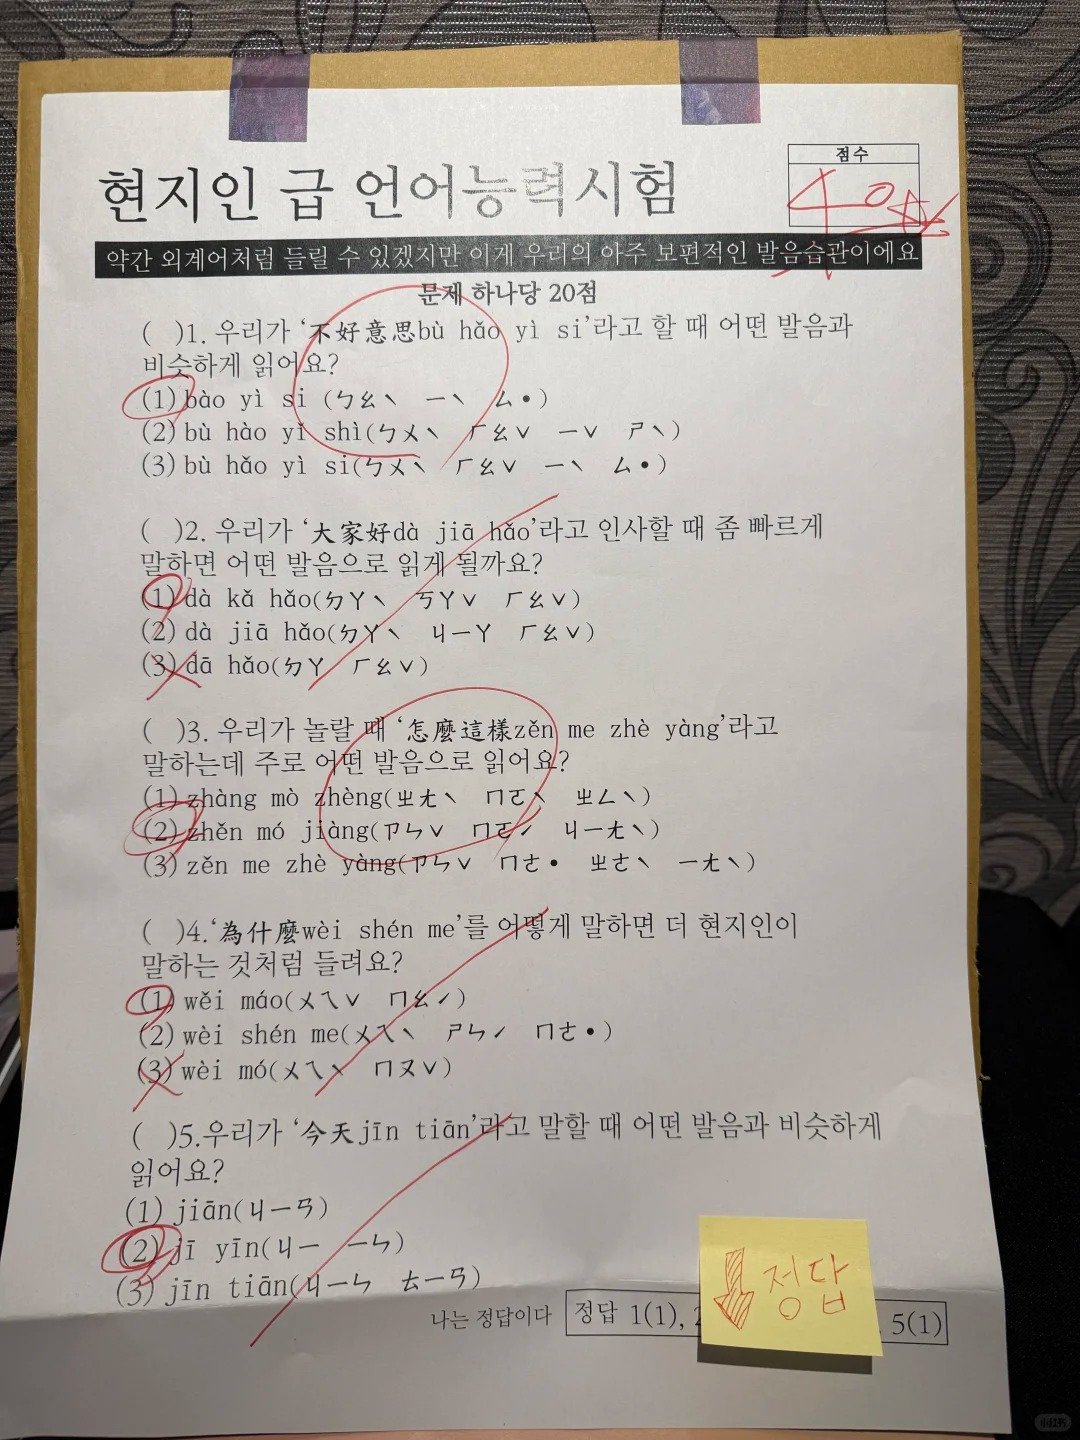 현지인 급 언어능력시험
점수
40점
약간 외계어처럼 들릴 수 있겠지만 이게 우리의 아주 보편적인 발음습관이에요
문제 하나당 20점
( )1. 우리가 ‘不好意思bù hǎo yì si’라고 할 때 어떤 발음과
비슷하게 읽어요?
(1) bào yì si (ㄅㄠˋ ㄧˋ ㄙ•)
(2) bù hào yǐ shì(ㄅㄨˋ ㄏㄠˇ ㄧˇ ㄕˋ)
(3) bù hǎo yì si(ㄅㄨˋ ㄏㄠˇ ㄧˋ ㄙ•)
( )2. 우리가 ‘大家好dà jiā hǎo’라고 인사할 때 좀 빠르게
말하면 어떤 발음으로 읽게 될까요?
(1) dà kǎ hǎo(ㄉㄚˋ ㄎㄚˇ ㄏㄠˇ)
(2) dà jiā hǎo(ㄉㄚˋ ㄐㄧㄚ ㄏㄠˇ)
(3) dā hǎo(ㄉㄚ ㄏㄠˇ)
( )3. 우리가 놀랄 때 ‘怎麼這樣zěn me zhè yàng’라고
말하는데 주로 어떤 발음으로 읽어요?
(1) zhàng mò zhèng(ㄓㄤˋ ㄇㄛˋ ㄓㄥˋ)
(2) zhěn mó jiàng(ㄗㄣˇ ㄇㄛˊ ㄐㄧㄤˋ)
(3) zěn me zhè yàng(ㄗㄣˇ ㄇㄜ• ㄓㄜˋ ㄧㄤˋ)
( )4.‘為什麼wèi shén me’를 어떻게 말하면 더 현지인이
말하는 것처럼 들려요?
(1) wěi máo(ㄨㄟˇ ㄇㄠˊ)
(2) wèi shén me(ㄨㄟˋ ㄕㄣˊ ㄇㄜ•)
(3) wèi mó(ㄨㄟˋ ㄇㄡˇ)
( )5.우리가 ‘今天jīn tiān’라고 말할 때 어떤 발음과 비슷하게
읽어요?
(1) jiān(ㄐㄧㄢ)
(2) jī yīn(ㄐㄧ ㄧㄣ)
(3) jīn tiān(ㄐㄧㄣ ㄊㄧㄢ)
정답
나는 정답이다 정답 1(1), 5(1)
小红书